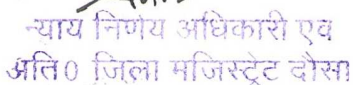 न्याय निर्णय अधिकारी एवं
अति0 जिला मजिस्ट्रेट दौसा